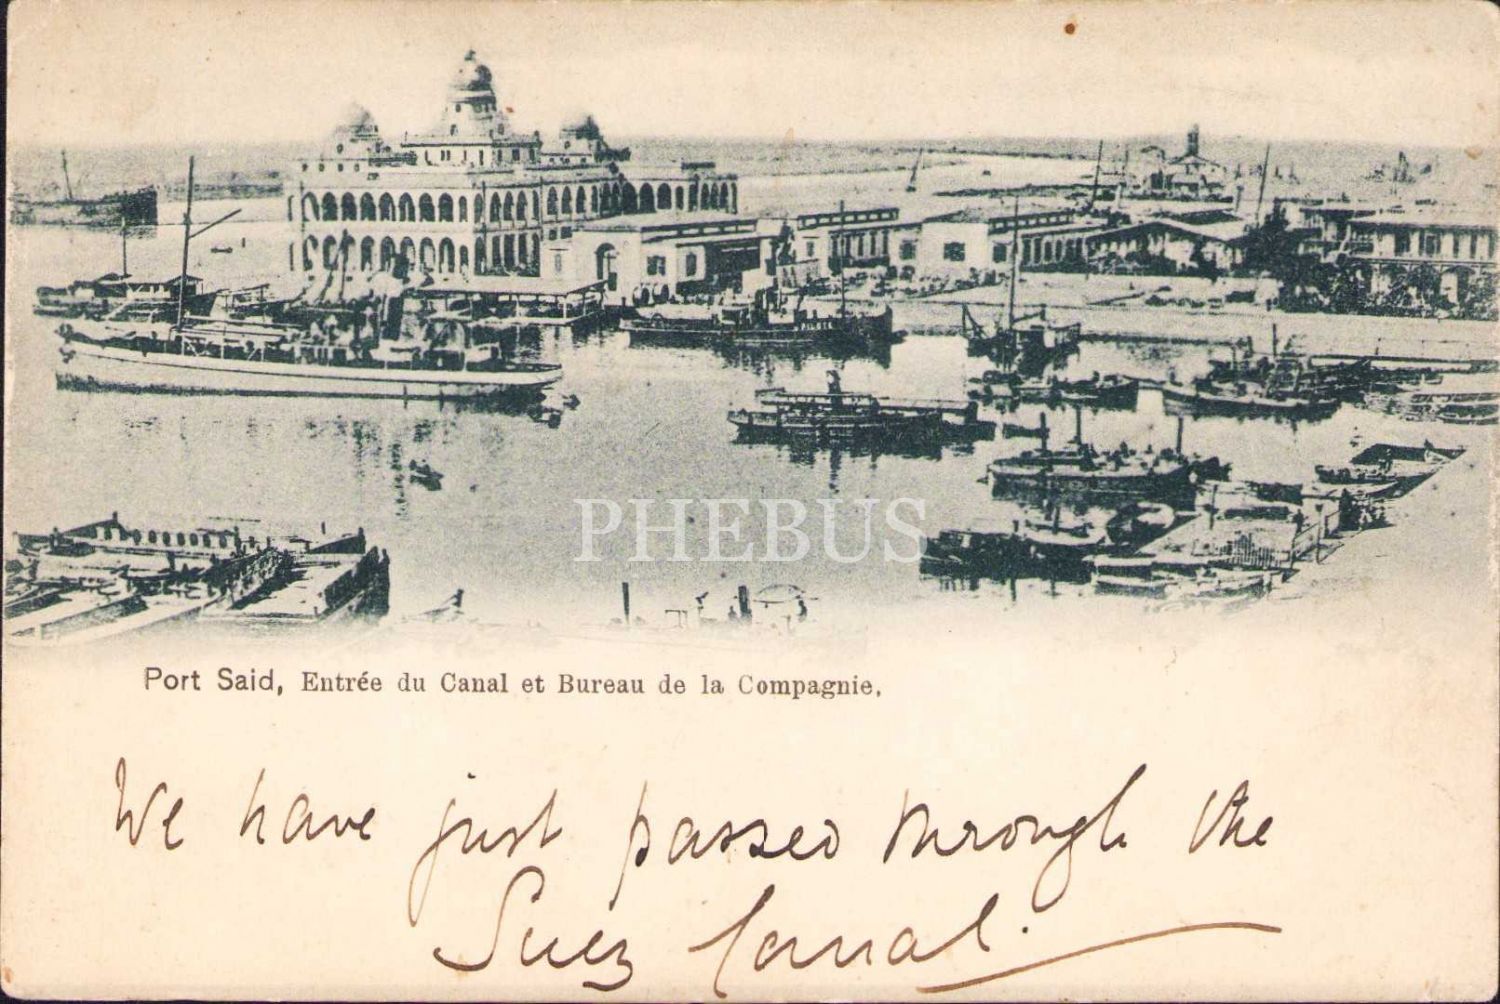 PILOTE
PHEBUS
Port Said, Entrée du Canal et Bureau de la Compagnie.
We have just passed through the
Suez Canal.